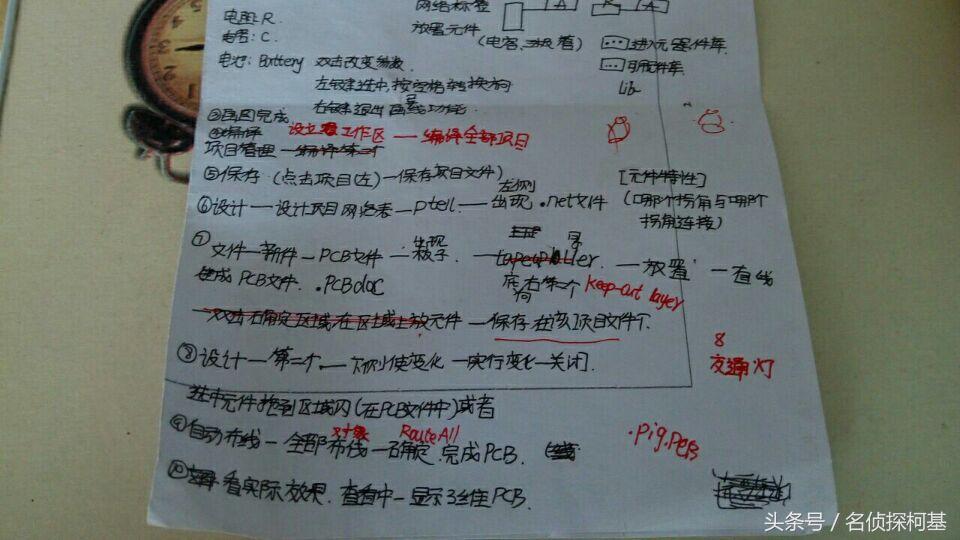 网络标签 A R A
电阻: R.
放置元件
电容: C.
(电容、二极管)
… 进入元器件库
电池: Battery 双击改变参数.
… 可用元件库
左键选中,按空格转换方向
Lib
右键退出画线功能.
③画图完成
④编译 设立工作区 — 编译全部项目
项目管理 —
⑤保存 (点击项目(左) — 保存项目文件)
[元件特性]
左侧
⑥设计 — 设计项目网络表 — — 出现 .net文件
(哪个拐角与哪个
拐角连接)
⑦文件 — 新件 — PCB文件 — 出现 板子. — — 放置 — 直线
生成PCB文件. .PCBdoc
底 右第一个 keep-out layer
双击右确定区域,在区域上放元件 — 保存在该项目文件下.
8
⑧设计 — 第一个 — 下侧使变化 — 实行变化 — 关闭.
交通灯
选中元件拖到区域内(在PCB文件中)或者
对象 Route All
⑨自动布线 — 全部布线 — 确定. 完成PCB.
.Pig.PCB
⑩ 看实际效果. 查看中 — 显示3维PCB.
头条号 / 名侦探柯基